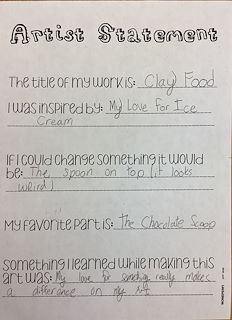 Artist Statement
The title of my work is: Clay Food
I was inspired by: My Love For Ice
Cream
If I could change something it would
be: The spoon on top (it looks
weird)
My favorite part is: The Chocolate Scoop
Something I learned while making this
art was: My love for something really makes
a difference on my Art